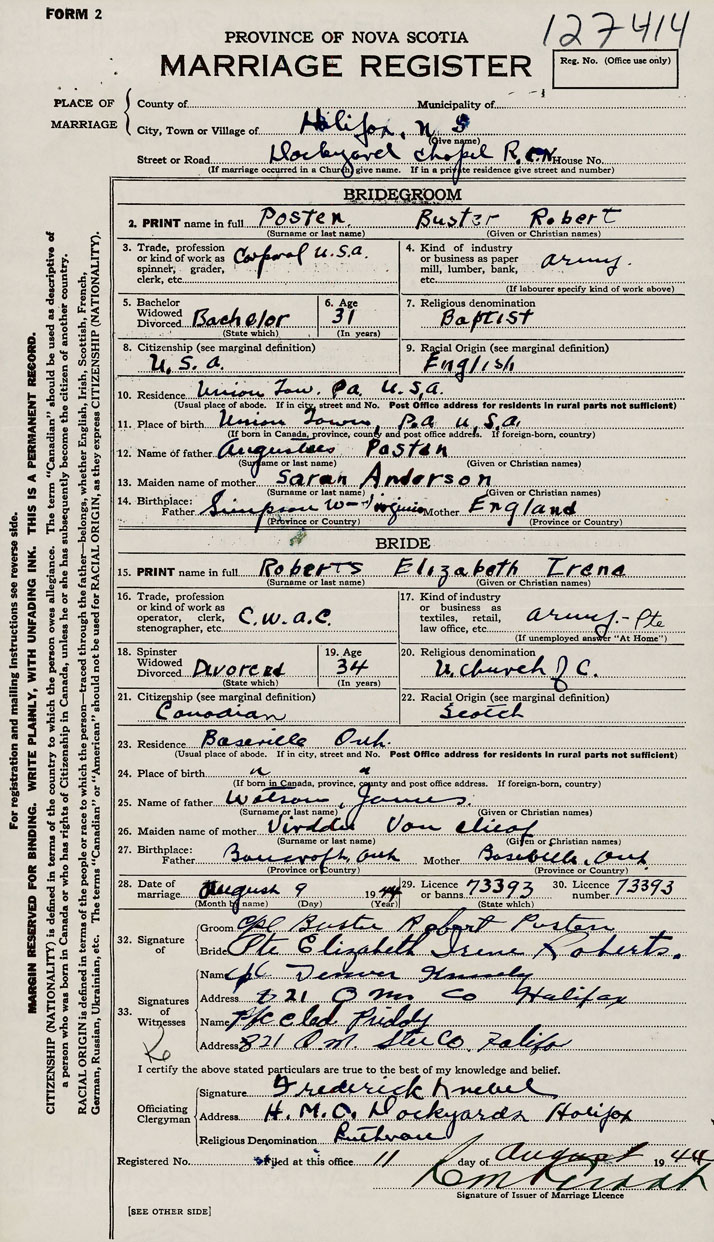 FORM 2
127414
PROVINCE OF NOVA SCOTIA
MARRIAGE REGISTER
Reg. No. (Office use only)
PLACE OF MARRIAGE
County of Municipality of
City, Town or Village of Halifax, N S
(Give name)
Street or Road Dockyard Chapel R.C.N. House No.
(If marriage occurred in a Church give name. If in a private residence give street and number)
BRIDEGROOM
2. PRINT name in full Posten Buster Robert
(Surname or last name) (Given or Christian names)
3. Trade, profession or kind of work as spinner, grader, clerk, etc. Corporal U.S.A.
4. Kind of industry or business as paper mill, lumber, bank, etc. Army.
(If labourer specify kind of work above)
5. Bachelor Widowed Divorced Bachelor
(State which)
6. Age 31
(In years)
7. Religious denomination Baptist
8. Citizenship (see marginal definition) U.S.A.
9. Racial Origin (see marginal definition) English
10. Residence Union Tow, Pa. U.S.A.
(Usual place of abode. If in city, street and No. Post Office address for residents in rural parts not sufficient)
11. Place of birth Union Town, P.A U.S.A.
(If born in Canada, province, county and post office address. If foreign-born, country)
12. Name of father Posten
(Surname or last name) (Given or Christian names)
13. Maiden name of mother Sarah Anderson
(Surname or last name) (Given or Christian names)
14. Birthplace: Father Simpson W-Virginia Mother England
(Province or Country) (Province or Country)
BRIDE
15. PRINT name in full Roberts Elizabeth Irene
(Surname or last name) (Given or Christian names)
16. Trade, profession or kind of work as operator, clerk, stenographer, etc. C.W.A.C.
17. Kind of industry or business as textiles, retail, law office, etc. Army.-Pte
(If unemployed answer "At Home")
18. Spinster Widowed Divorced Divorced
(State which)
19. Age 34
(In years)
20. Religious denomination U. Church of C.
21. Citizenship (see marginal definition) Canadian
22. Racial Origin (see marginal definition) Scotch
23. Residence Ont
(Usual place of abode. If in city, street and No. Post Office address for residents in rural parts not sufficient)
24. Place of birth " "
(If born in Canada, province, county and post office address. If foreign-born, country)
25. Name of father Watson, James
(Surname or last name) (Given or Christian names)
26. Maiden name of mother Van
(Surname or last name) (Given or Christian names)
27. Birthplace: Father Bancroft, Ont Mother Ont
(Province or Country) (Province or Country)
28. Date of marriage August 9 1944
(Month by name) (Day) (Year)
29. Licence or banns 73393
(State which)
30. Licence number 73393
32. Signature of
Groom Cpl Buster Robert Posten
Bride Pte Elizabeth Irene Roberts.
33. Signatures of Witnesses
Name Cpl Denver
Address 821 Q M Co Halifax
Name Pfc Priddy
Address 821 Q.M. Co.
I certify the above stated particulars are true to the best of my knowledge and belief.
Officiating Clergyman
Signature Frederick Knebel
Address H.M.C. Dockyards Halifax
Religious Denomination Lutheran
Registered No. Filed at this office 11 day of August 1944
Signature of Issuer of Marriage Licence
[SEE OTHER SIDE]
For registration and mailing instructions see reverse side.
MARGIN RESERVED FOR BINDING. WRITE PLAINLY, WITH UNFADING INK. THIS IS A PERMANENT RECORD.
CITIZENSHIP (NATIONALITY) is defined in terms of the country to which the person owes allegiance. The term "Canadian" should be used as descriptive of
a person who was born in Canada or who has rights of Citizenship in Canada, unless he or she has subsequently become the citizen of another country.
RACIAL ORIGIN is defined in terms of the people or race to which the person—traced through the father—belongs, whether English, Irish, Scottish, French,
German, Russian, Ukrainian, etc. The terms "Canadian" or "American" should not be used for RACIAL ORIGIN, as they express CITIZENSHIP (NATIONALITY).